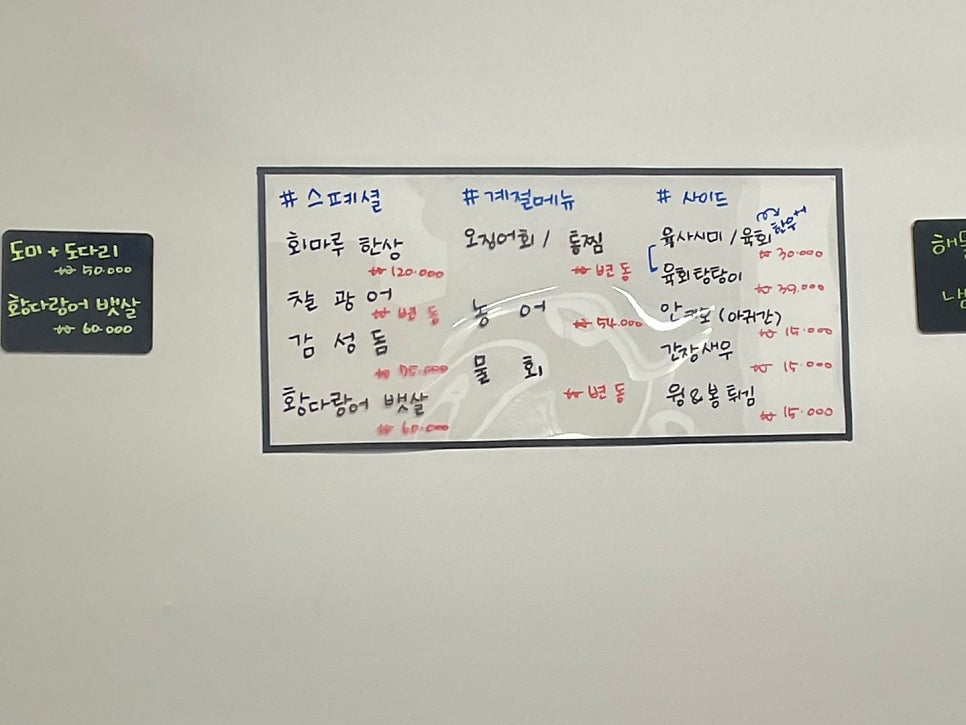 도미 + 도다리
₩ 50.000
황다랑어 뱃살
₩ 60.000
# 스페셜
회마루 한상
₩ 120.000
찰 광 어
₩ 변 동
감 성 돔
황다랑어 뱃살
₩ 60.000
# 계절메뉴
오징어회 / 통찜
₩ 변 동
농 어
₩ 54.000
물 회
₩ 변 동
# 사이드
한우
육사시미 / 육회
₩ 30.000
육회탕탕이
₩ 39.000
안키모 (아귀간)
₩ 15.000
간장새우
₩ 15.000
윙&봉 튀김
₩ 15.000